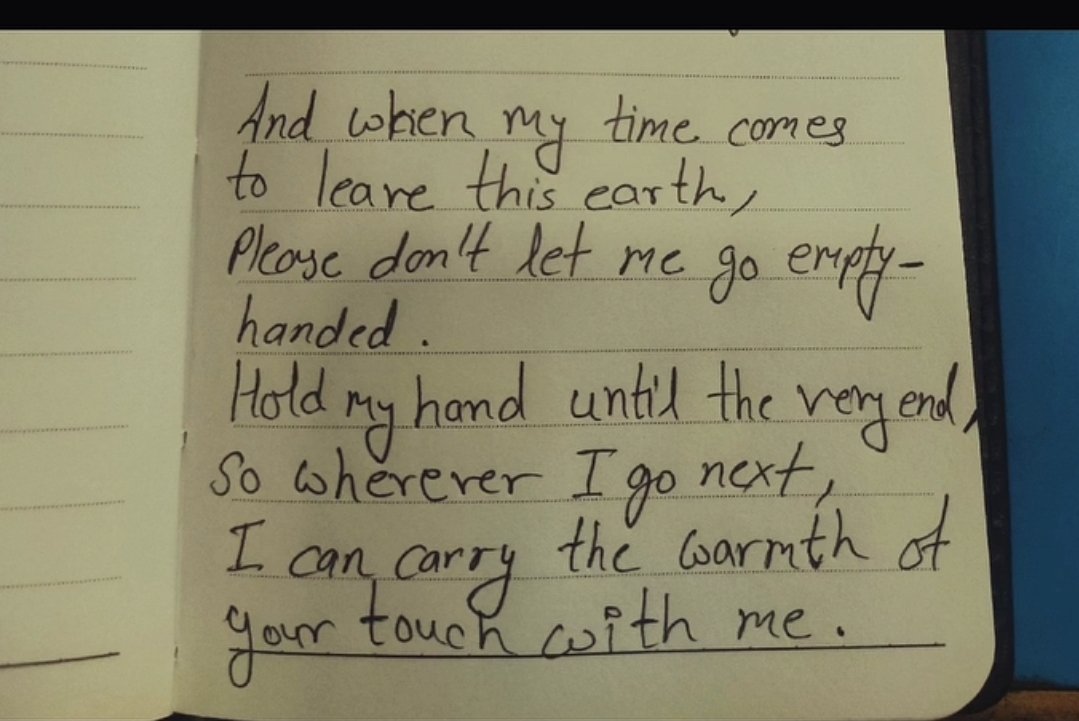 And when my time comes
to leave this earth,
Please don't let me go empty-
handed.
Hold my hand until the very end,
So wherever I go next,
I can carry the warmth of
your touch with me.